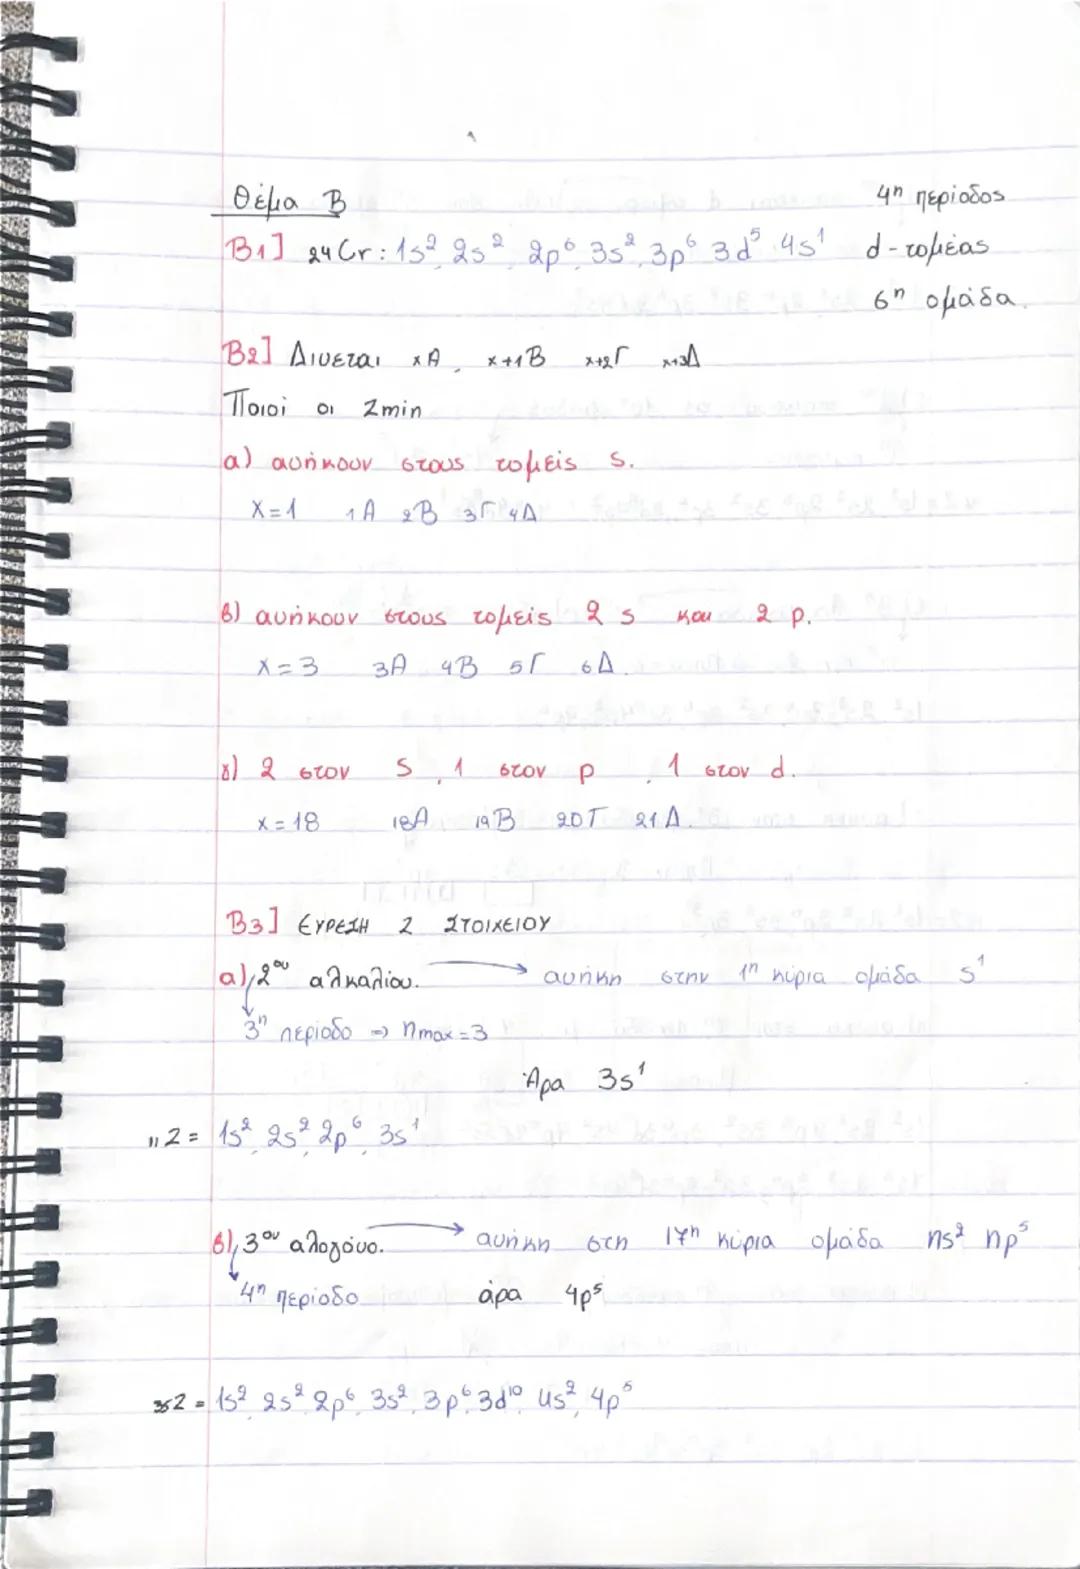 Θέμα Β
4η περίοδος
Β1] 24Cr: 1s² 2s² 2p⁶ 3s² 3p⁶ 3d⁵ 4s¹ d-τομέας
6η ομάδα.
Β2] Δινεται xA, x+1B x+2Γ x+3Δ
Ποιοί οι Zmin
α) ανήκουν στους τομείς s.
X=1 1A 2B 3Γ 4Δ
β) ανήκουν στους τομείς 2 s και 2 p.
X=3 3A 4B 5Γ 6Δ.
γ) 2 στον s, 1 στον p, 1 στον d.
x=18 18A 19B 20Γ 21Δ.
Β3] ΕΥΡΕΣΗ Z ΣΤΟΙΧΕΙΟΥ
α) 2ου αλκαλίου. → ανήκη στην 1η κύρια ομάδα s¹
3η περίοδο => nmax=3
Άρα 3s¹
11Z = 1s², 2s², 2p⁶, 3s¹
β) 3ου αλογόνο. → ανήκη στη 17η κύρια ομάδα ns² np⁵
4η περίοδο άρα 4p⁵
35Z = 1s², 2s², 2p⁶, 3s², 3p⁶, 3d¹⁰, 4s², 4p⁵